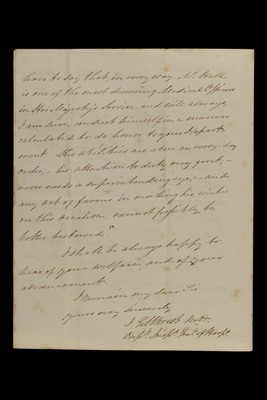 leave to say that, in every way Mr. Hall
is one of the most deserving Medical Officers
in Her Majesty's Service, and will always
I am sure, conduct himself in a manner
calculated to do honor to your Depart
ment. His abilities are above an every-day
order, - his attention to duty very great, -
never needs a superintending eye, - and
any act of favour in meeting his wishes
on this occasion cannot possibly be
better bestowed."
I shall be always happy to
hear of your welfare and of your
advancement
I remain my dear Sir
yours very sincerely
Dep. Insp. Genl. of Hosp.